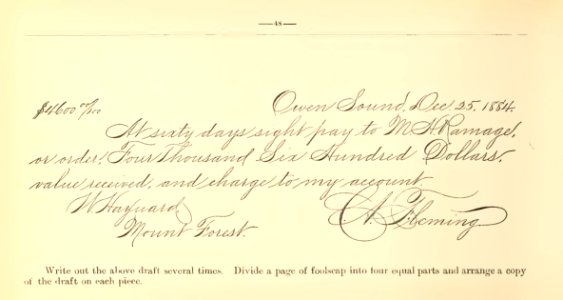 —48—
$4600.00/100 Owen Sound, Dec. 25. 1884.
At sixty days sight pay to M. H. Ramage,
or order, Four Thousand Six Hundred Dollars,
value received, and charge to my account
W Hayward C. A. Fleming
Mount Forest.
Write out the above draft several times. Divide a page of foolscap into four equal parts and arrange a copy
of the draft on each piece.